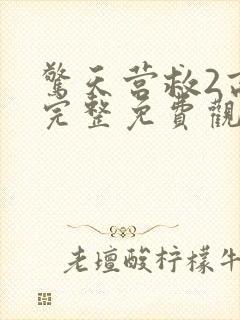 驚天营救2高
完整免費觀
老壇酸柠檬牛